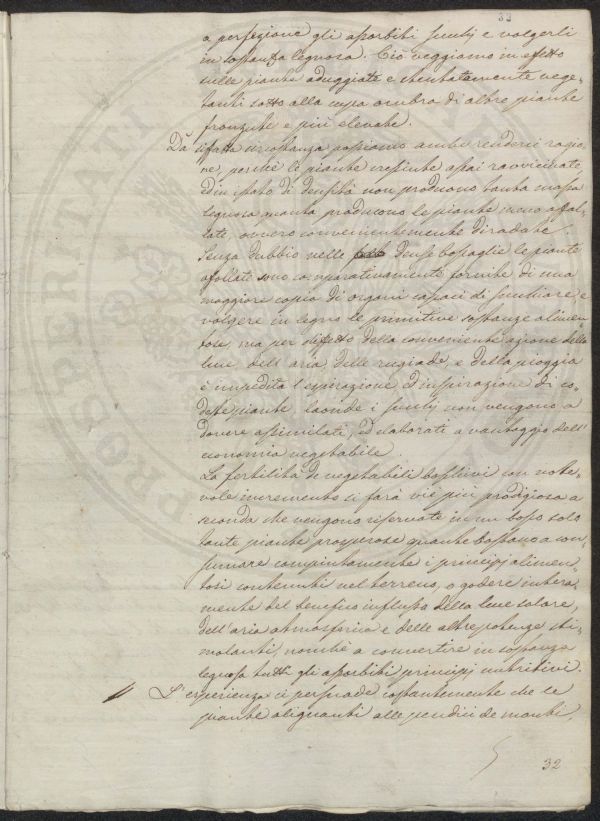 32
a perfezione gli assorbiti succhj e volgerli
in sostanza legnosa. Ciò veggiamo in effetto
nelle piante aduggiate e stentatamente vege-
tanti sotto alla cupa ombra di altre piante
fronzute e più elevate.
Da siffatta circostanza possiamo anche renderci ragio-
ne, perchè le piante cresciute assai ravvicinate
ed in istato di densità non producono tanta massa
legnosa quanta producono le piante meno affol-
late, ovvero convenientemente diradate.
Senza dubbio nelle dense boscaglie le piante
affollate sono comparativamente fornite di una
maggiore copia di organi capaci di succhiare, e
volgere in legno le primitive sostanze alimen-
tose, ma per difetto della conveniente azione della
luce, dell'aria, delle rugiade, e della pioggia
è impedita l'espirazione, ed inspirazione di co-
deste piante, laonde i succhj non vengono a
dovere assimilati, ed elaborati a vantaggio dell'
economia vegetabile.
La fertilità de vegetabili boschivi con note-
vole incremento si farà vie più prodigiosa a
seconda che vengono riservate in un bosco solo
tante piante prosperose quante bastano a con-
sumare compiutamente i principj alimen-
tosi contenuti nel terreno, o godere intera-
mente del benefico influsso della luce solare,
dell'aria atmosferica e delle altre potenze sti-
molanti, nonchè a convertire in sostanza
legnosa tutti gli assorbiti principj nutritivi.
L'esperienza ci persuade costantemente che le
piante alignanti alle pendici de monti,
32
PROSPERITATI